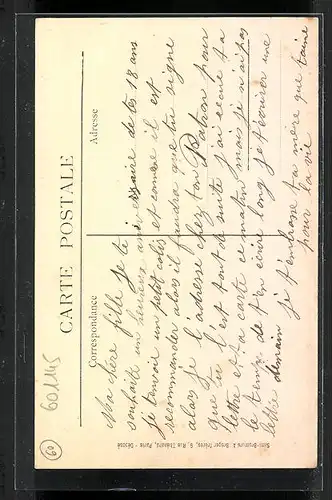 CARTE POSTALE
Correspondance
Adresse
Ma chère fille je te
souhaite un heureux anniversaire de tes 18 ans
je t'envoie un petit colis et comme il est
recommander alors il faudra que tu signe
alors je l'adresse chez ton Patron pour
que tu l'est tout de suite j'ai recue ta
lettre et ta carte ce matin mais je n'ai pas
le temps de t'en écrire long je t'envoie une
lettre demain je t'embrasse ta mère que t'aime
pour la vie
601145
60